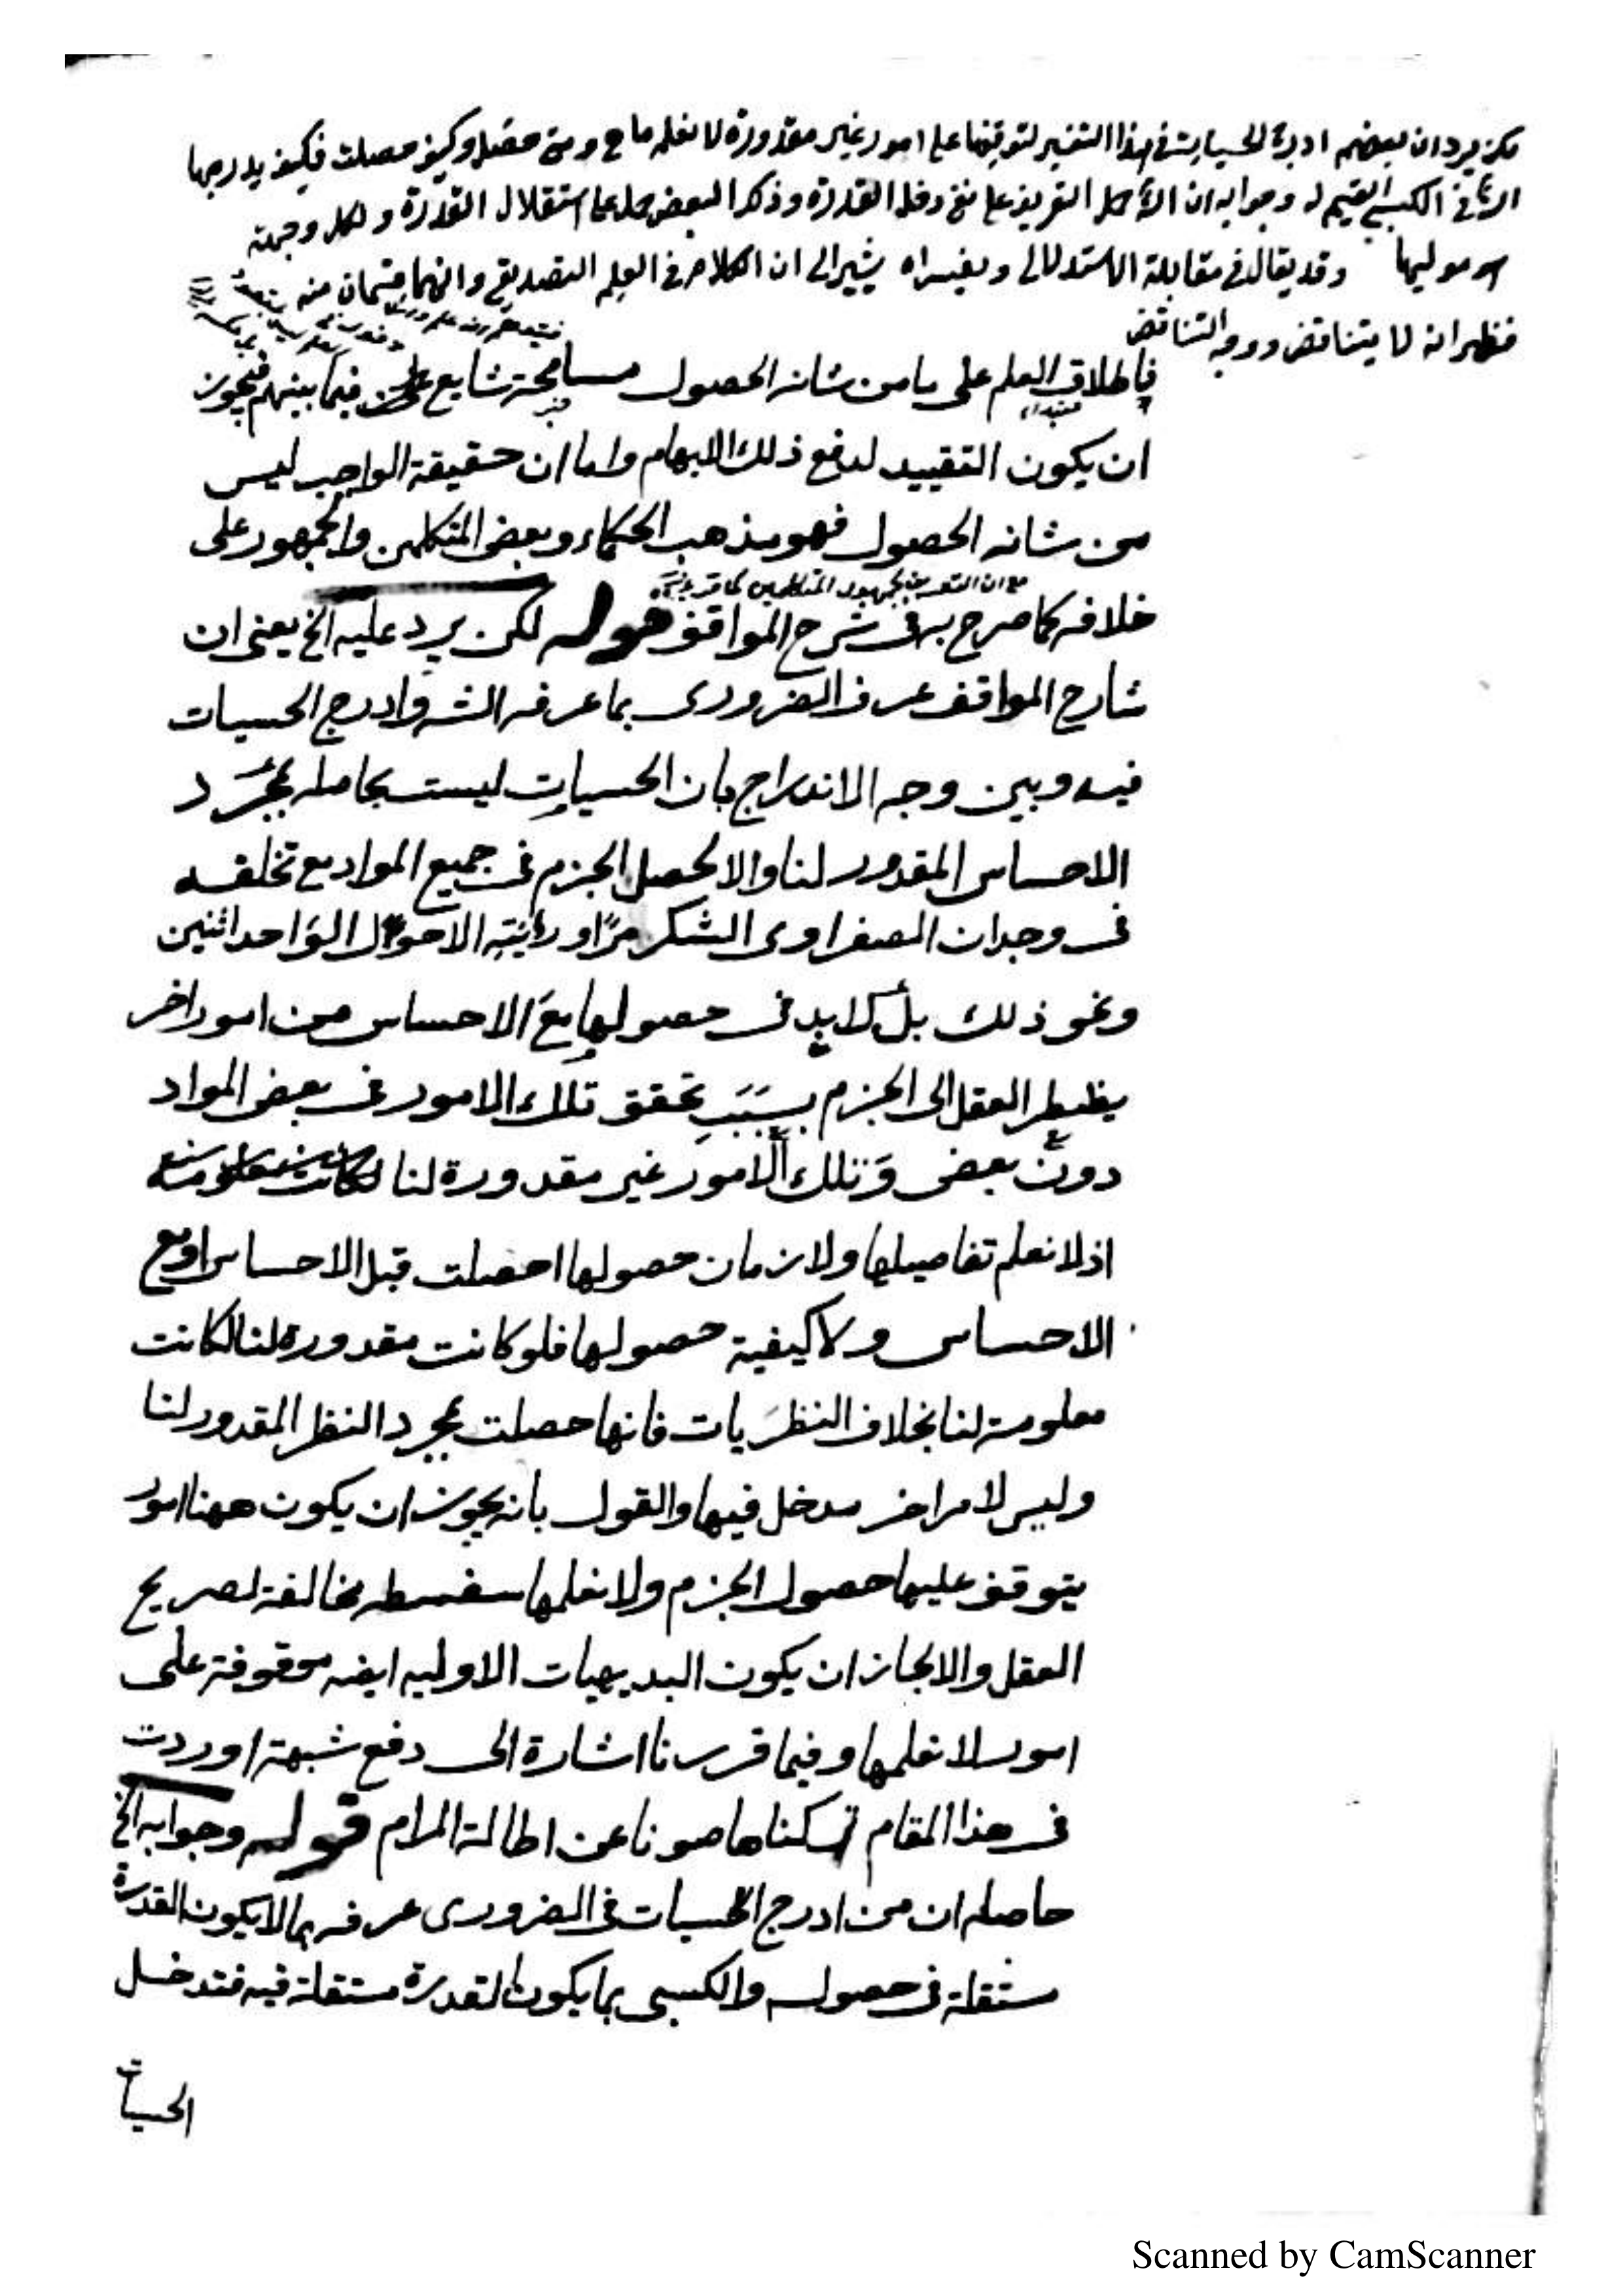 لكن يرد ان بعضهم ادرج الحسيات فى هذا التفسير لتوقفها على امور غير مقدورة لا نعلم ما هى ومتى حصل وكيف حصلت فكيف يدرجها
الش فى الكسبى القسيم له وجوابه ان الش حمل التعريف على نفى دخل القدرة وذكر البعض حمله على استقلال القدرة ولكل وجهة
هو موليها وقد يقال فى مقابلة الاستدلالى ويفسراه يشير الى ان الكلام فى العلم التصديقى وانهما قسمان منه
فظهر انه لا يتناقض ووجه التناقض
فاطلاق العلم على ما من شانه الحصول مسامحة شايع فيما بينهم فيجوز
مبتداء خبر
ان يكون التقييد لدفع ذلك الابهام واما ان حقيقة الواجب ليس
من شانه الحصول فهو مذهب الحكماء وبعض المتكلمين والجمهور على
مع ان التعريف لجمهور المتكلمين كما
خلافه كما صرح به فى شرح المواقف قوله لكن يرد عليه الخ يعنى ان
شارح المواقف عرف الضرورى بما عرفه الشه وادرج الحسيات
فيه وبين وجه الاندراج بان الحسيات ليست بحاصله بمجرد
الاحساس المقدور لنا والا لحصل الجزم فى جميع المواد مع تخلفه
فى وجدان الصفراوى الشكر مرّا ورئية الاحول الواحد اثنين
ونحو ذلك بل لا بد فى حصولها مع الاحساس من امور اخر
يظطر العقل الى الجزم بسبب تحقق تلك الامور فى بعض المواد
دون بعض وتلك الامور غير مقدورة لنا
اذ لا نعلم تفاصيلها ولا زمان حصولها احصلت قبل الاحساس او مع
الاحساس ولا كيفية حصولها فلو كانت مقدورة لنا لكانت
معلومة لنا بخلاف النظريات فانها حصلت بمجرد النظر المقدور لنا
وليس لامر اخر مدخل فيها والقول بانه يجوز ان يكون ههنا امور
يتوقف عليها حصول الجزم ولا نعلمها سفسطه مخالفة لصريح
العقل والا لجاز ان يكون البديهيات الاوليه ايضه موقوفة على
امور لا نعلمها وفيما قررنا اشارة الى دفع شبهة اوردت
فى هذا المقام تركناها صونا عن اطالة المرام قوله وجوابه الخ
حاصله ان من ادرج الحسيات فى الضرورى عرفه بما لا يكون القدرة
مستقلة فى حصوله والكسبى بما يكون القدرة مستقلة فيه فتدخل
الحسيات
Scanned by CamScanner